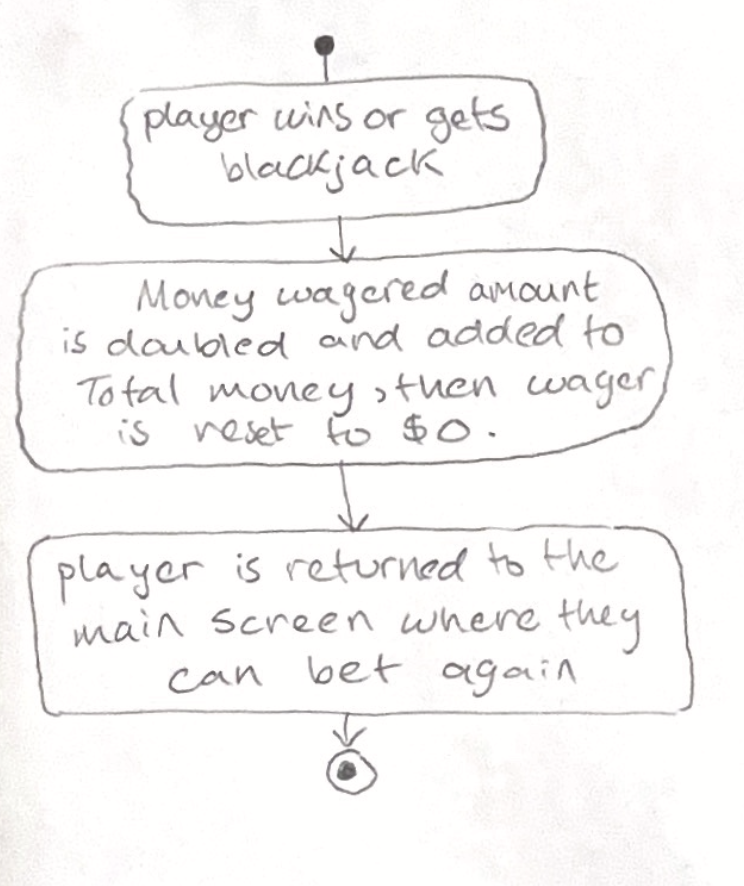 player wins or gets
blackjack
Money wagered amount
is doubled and added to
Total money, then wager
is reset to $0.
player is returned to the
main screen where they
can bet again